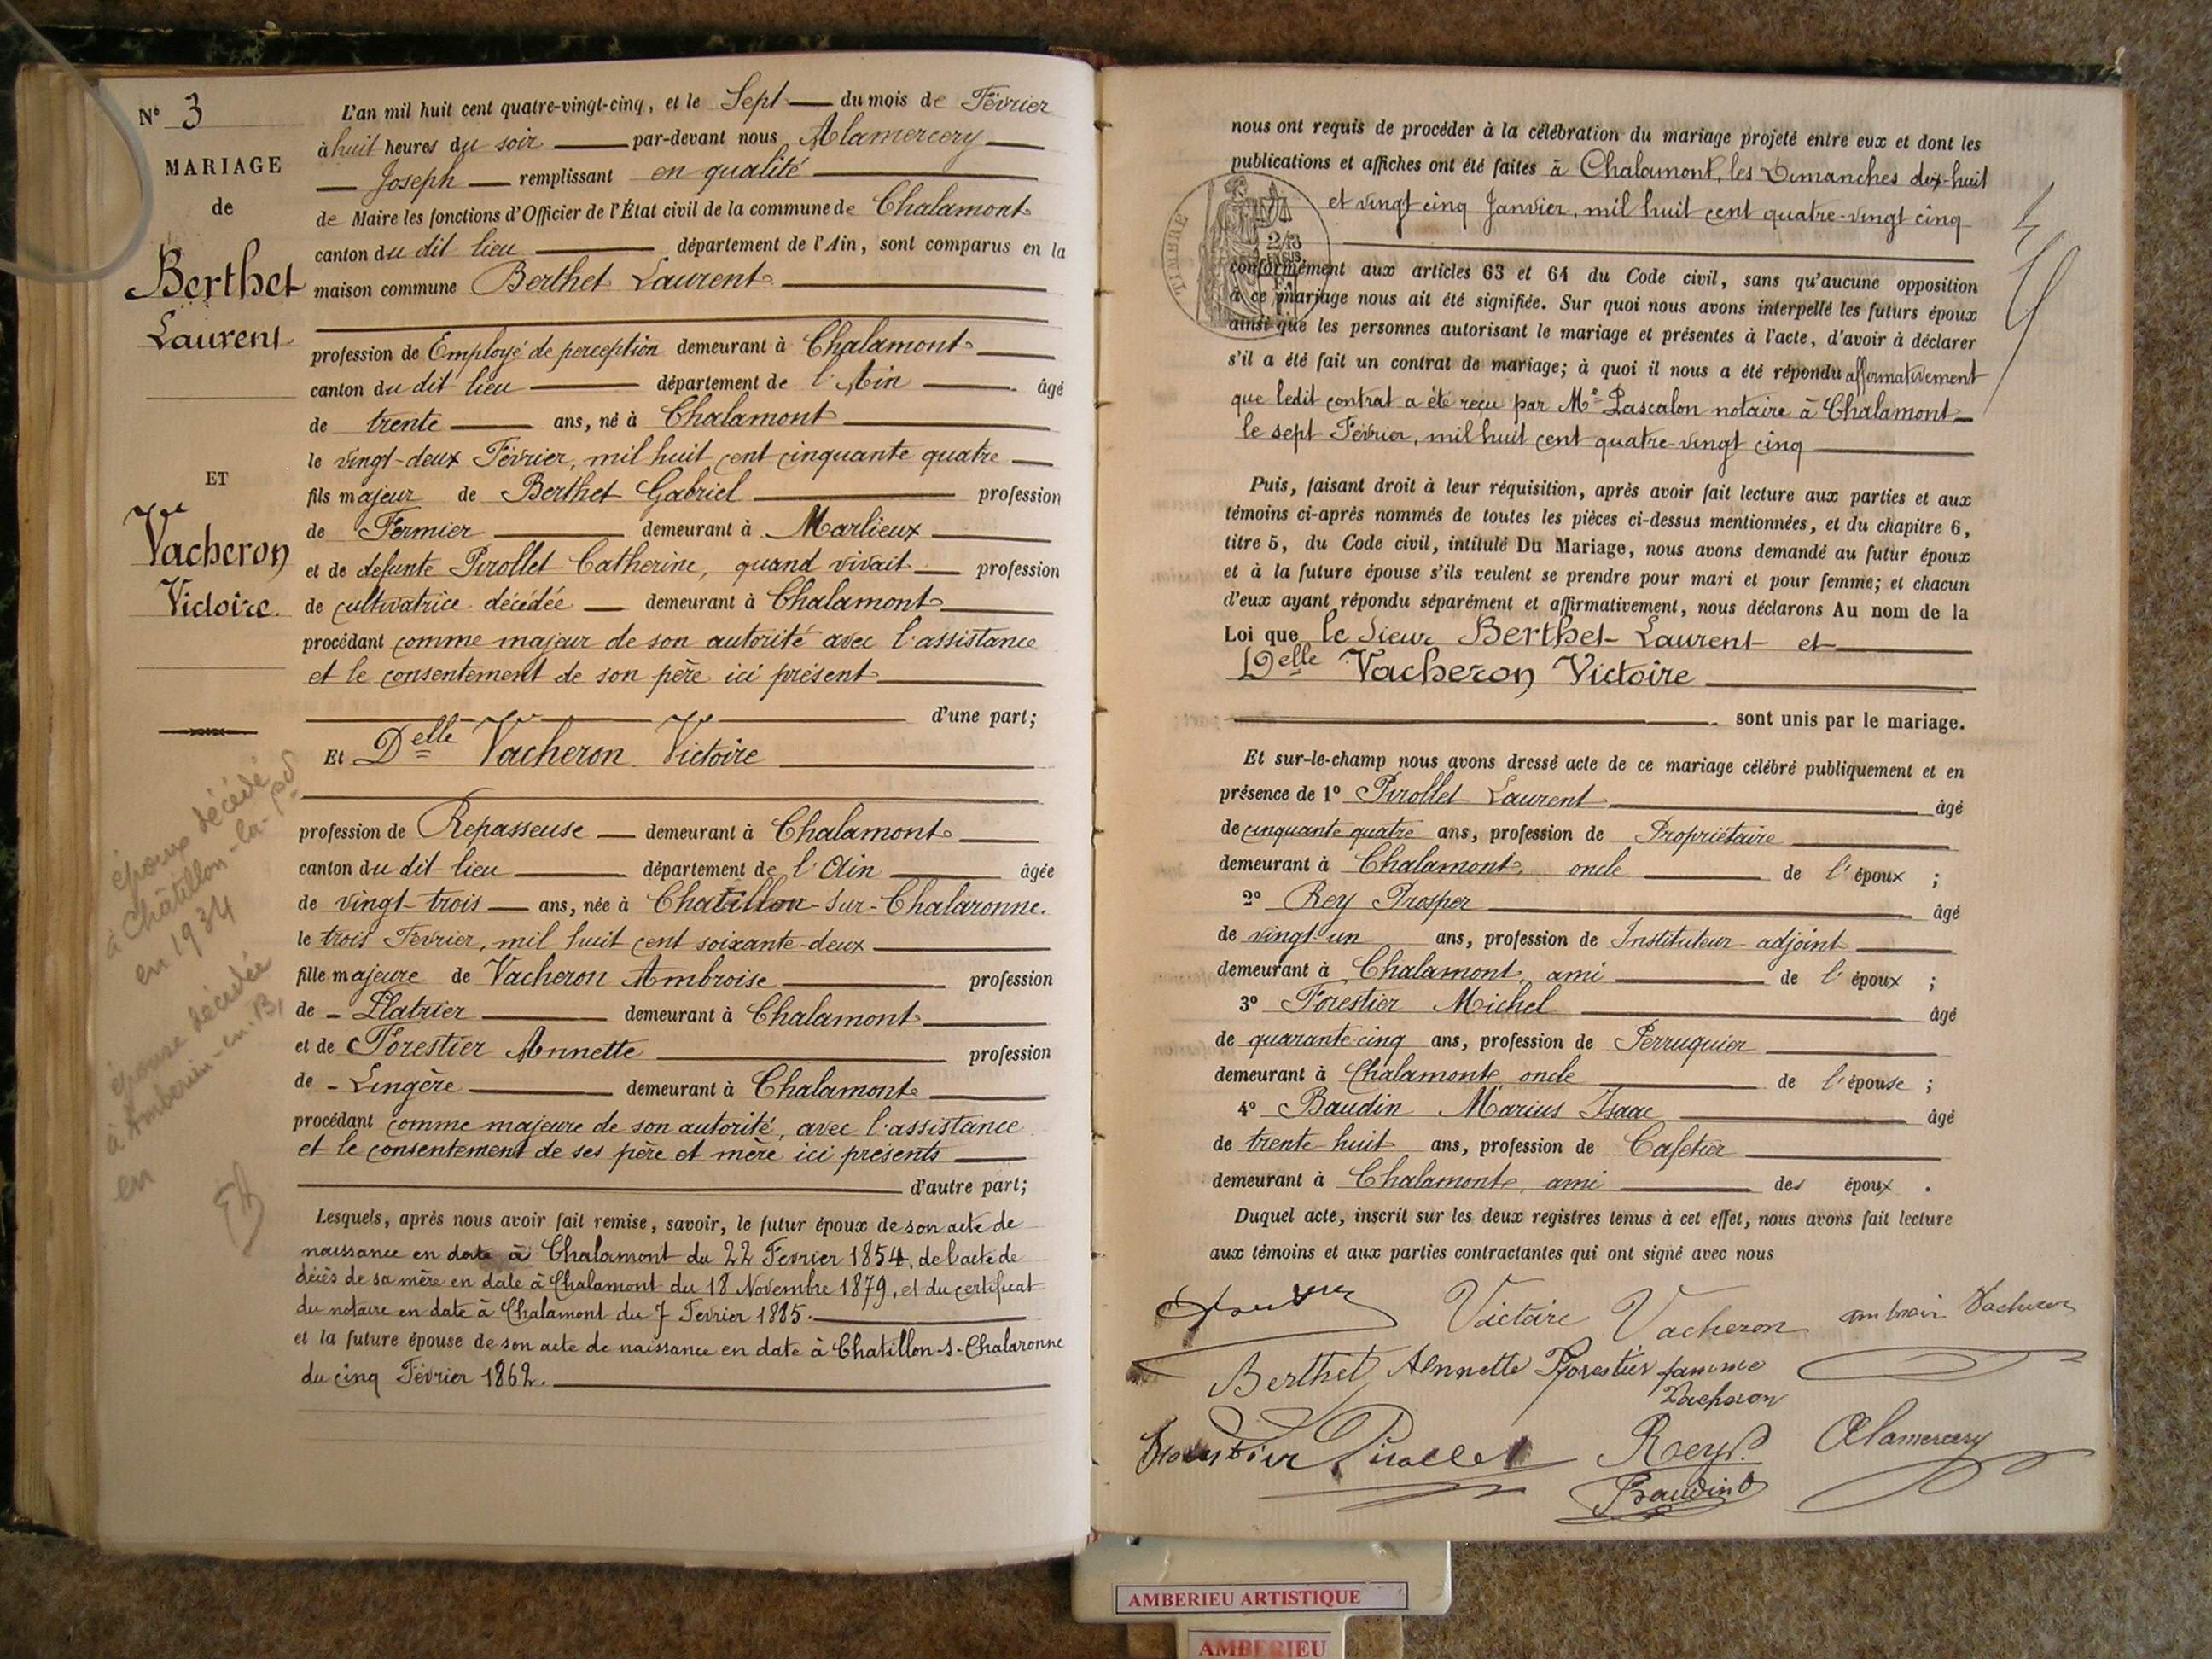 N° 3
MARIAGE
de
Berthet
Laurent
ET
Vacheron
Victoire.
époux décédé
à Châtillon-la-Pd
en 1934
épouse décédée
à Amberieu-en-B,
en
L'an mil huit cent quatre-vingt-cinq, et le Sept du mois de Février
à huit heures du soir par-devant nous Alamercery
Joseph remplissant en qualité
de Maire les fonctions d'Officier de l'État civil de la commune de Chalamont
canton du dit lieu département de l'Ain, sont comparus en la
maison commune Berthet Laurent
profession de Employé de perception demeurant à Chalamont
canton du dit lieu département de l'Ain âgé
de trente ans, né à Chalamont
le vingt-deux Février, mil huit cent cinquante quatre
fils majeur de Berthet Gabriel profession
de Fermier demeurant à Marlieux
et de defunte Pirollet Catherine, quand vivait profession
de cultivatrice décédée demeurant à Chalamont
procédant comme majeur de son autorité avec l'assistance
et le consentement de son père ici présent
d'une part;
Et Delle Vacheron Victoire
profession de Repasseuse demeurant à Chalamont
canton du dit lieu département de l'Ain âgée
de vingt trois ans, née à Chatillon-sur-Chalaronne.
le trois Février, mil huit cent soixante-deux
fille majeure de Vacheron Ambroise profession
de Platrier demeurant à Chalamont
et de Forestier Annette profession
de Lingère demeurant à Chalamont
procédant comme majeure de son autorité, avec l'assistance
et le consentement de ses père et mère ici présents
d'autre part;
Lesquels, après nous avoir fait remise, savoir, le futur époux de son acte de
naissance en date à Chalamont du 22 Fevrier 1854, de l'acte de
décès de sa mère en date à Chalamont du 18 Novembre 1879, et du certificat
du notaire en date à Chalamont du 7 Fevrier 1885.
et la future épouse de son acte de naissance en date à Chatillon-s-Chalaronne
du cinq Février 1862.
nous ont requis de procéder à la célébration du mariage projeté entre eux et dont les
publications et affiches ont été faites à Chalamont, les Dimanches dix-huit
et vingt cinq Janvier, mil huit cent quatre-vingt cinq
TIMBRE
conformément aux articles 63 et 64 du Code civil, sans qu'aucune opposition
à ce mariage nous ait été signifiée. Sur quoi nous avons interpellé les futurs époux
ainsi que les personnes autorisant le mariage et présentes à l'acte, d'avoir à déclarer
s'il a été fait un contrat de mariage; à quoi il nous a été répondu affirmativement
que ledit contrat a été reçu par Me Pascalon notaire à Chalamont
le sept Février, mil huit cent quatre-vingt cinq
Puis, faisant droit à leur réquisition, après avoir fait lecture aux parties et aux
témoins ci-après nommés de toutes les pièces ci-dessus mentionnées, et du chapitre 6,
titre 5, du Code civil, intitulé Du Mariage, nous avons demandé au futur époux
et à la future épouse s'ils veulent se prendre pour mari et pour femme; et chacun
d'eux ayant répondu séparément et affirmativement, nous déclarons Au nom de la
Loi que le Sieur Berthet Laurent et
Delle Vacheron Victoire
sont unis par le mariage.
Et sur-le-champ nous avons dressé acte de ce mariage célébré publiquement et en
présence de 1° Pirollet Laurent âgé
de cinquante quatre ans, profession de Propriétaire
demeurant à Chalamont, oncle de l'époux ;
2° Rey Prosper âgé
de vingt-un ans, profession de Instituteur-adjoint
demeurant à Chalamont, ami de l'époux ;
3° Forestier Michel âgé
de quarante-cinq ans, profession de Perruquier
demeurant à Chalamont, oncle de l'épouse ;
4° Baudin Marius Isaac âgé
de trente-huit ans, profession de Cafetier
demeurant à Chalamont, ami des époux .
Duquel acte, inscrit sur les deux registres tenus à cet effet, nous avons fait lecture
aux témoins et aux parties contractantes qui ont signé avec nous
Victoire Vacheron
Berthet Annette Forestier famme
Vacheron
Forestier Pirollet Rey P. Alamercery
Baudin
AMBERIEU ARTISTIQUE
AMBERIEU